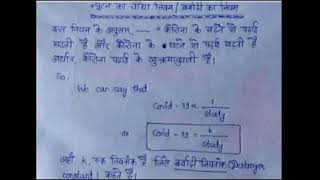 न्यूटन का चौथा नियम / बर्बादी का नियम
इस नियम के अनुसार --- " कोरोना के बढ़ने से पढ़ाई
घटती है और कोरोना के घटने से पढ़ाई बढ़ती है
अर्थात, कोरोना पढ़ाई के व्युत्क्रमानुपाती है।
So,
We can say that
Covid - 19 ∝ 1/study
or
Covid - 19 = k/study
जहाँ k एक नियतांक है जिसे बर्बादी नियतांक (Destroyer
constant) कहते हैं।